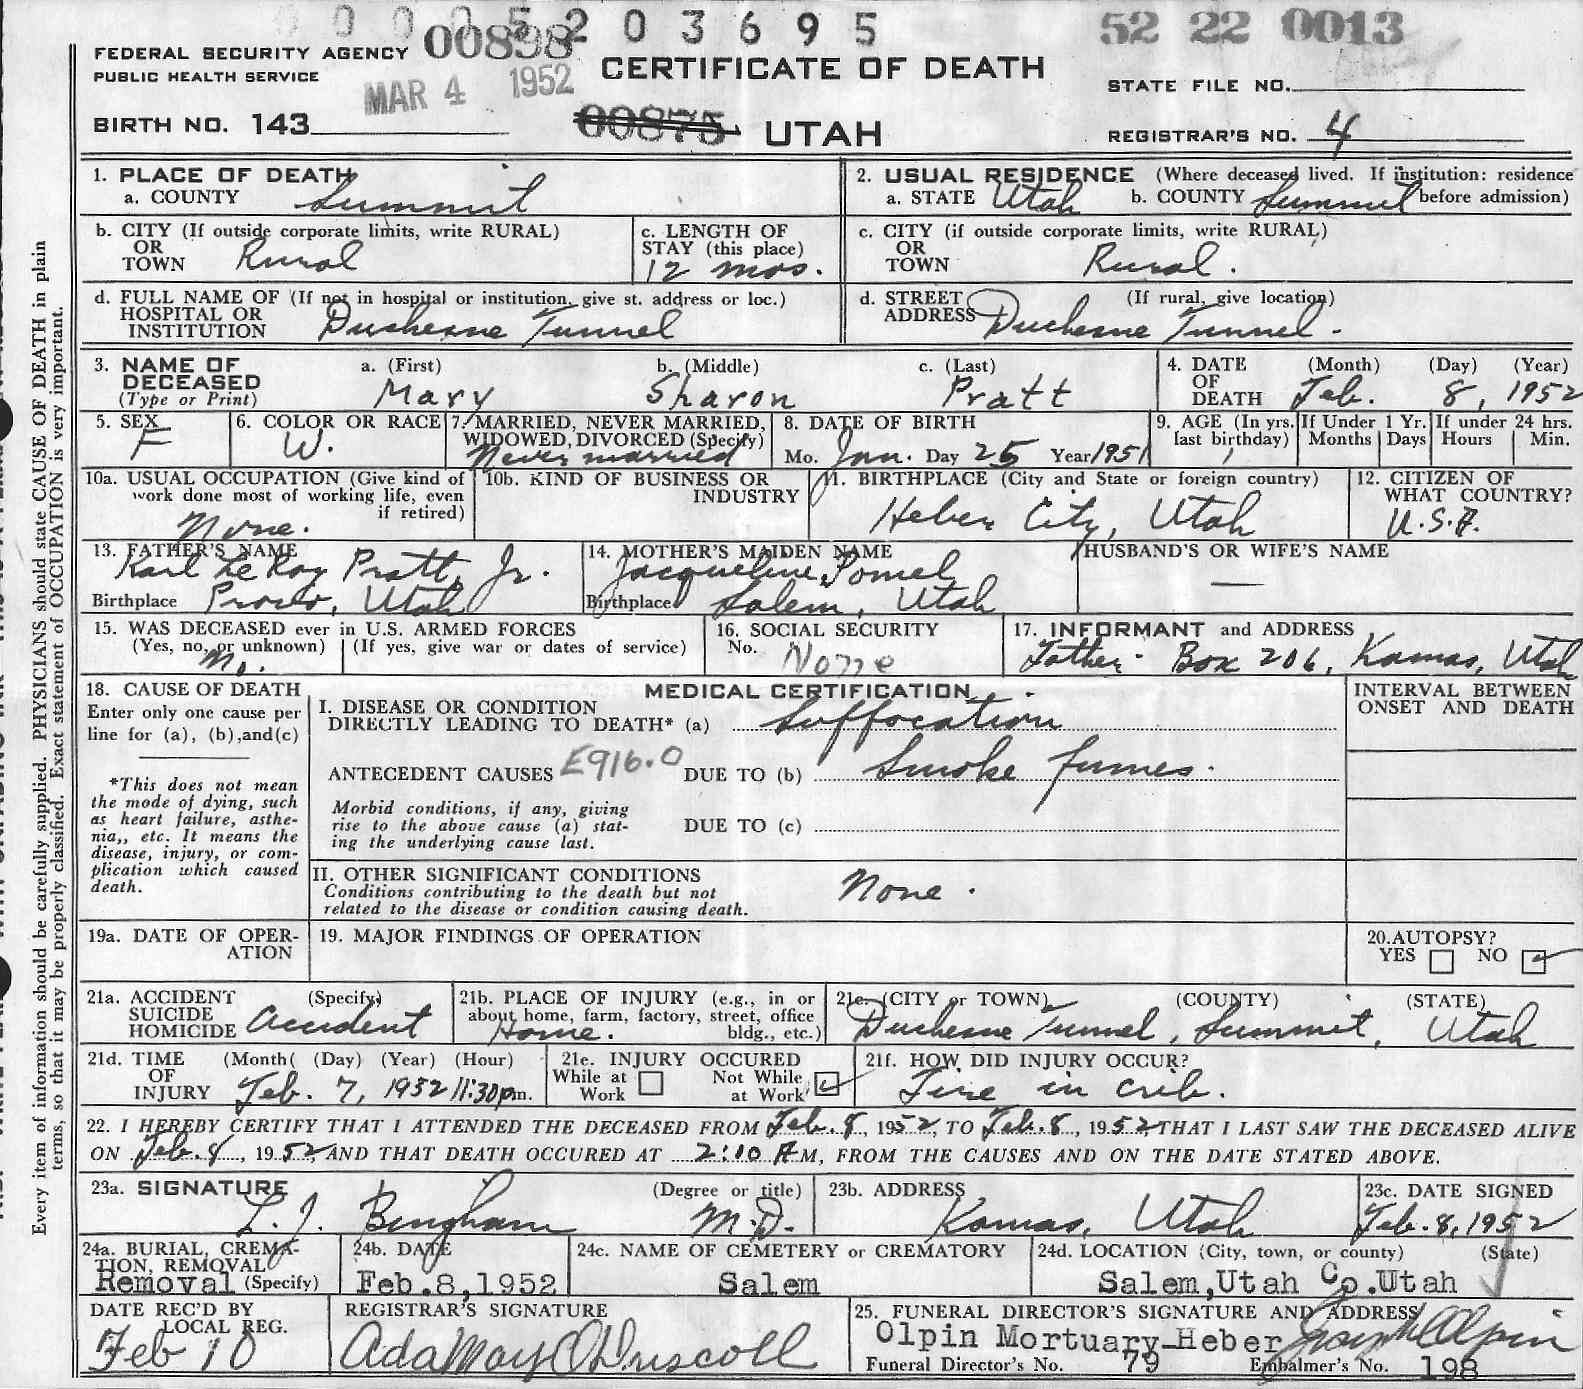 0 0 0 5 2 0 3 6 9 5
52 22 0013
FEDERAL SECURITY AGENCY 00898
PUBLIC HEALTH SERVICE
MAR 4 1952
CERTIFICATE OF DEATH
STATE FILE NO.
BIRTH NO. 143
00875 UTAH
REGISTRAR'S NO. 4
1. PLACE OF DEATH
a. COUNTY Summit
2. USUAL RESIDENCE (Where deceased lived. If institution: residence
a. STATE Utah b. COUNTY Summit before admission)
b. CITY (If outside corporate limits, write RURAL)
OR
TOWN Rural
c. LENGTH OF
STAY (this place)
12 mos.
c. CITY (if outside corporate limits, write RURAL)
OR
TOWN Rural.
d. FULL NAME OF (If not in hospital or institution, give st. address or loc.)
HOSPITAL OR
INSTITUTION Duchesne Tunnel
d. STREET (If rural, give location)
ADDRESS Duchesne Tunnel.
3. NAME OF
DECEASED
(Type or Print)
a. (First) b. (Middle) c. (Last)
Mary Sharon Pratt
4. DATE (Month) (Day) (Year)
OF
DEATH Feb. 8, 1952
5. SEX
F
6. COLOR OR RACE
W.
7. MARRIED, NEVER MARRIED,
WIDOWED, DIVORCED (Specify)
Never married
8. DATE OF BIRTH
Mo. Jan. Day 25 Year 1951
9. AGE (In yrs.
last birthday)
1
If Under 1 Yr.
Months Days
If under 24 hrs.
Hours Min.
10a. USUAL OCCUPATION (Give kind of
work done most of working life, even
if retired)
None.
10b. KIND OF BUSINESS OR
INDUSTRY
11. BIRTHPLACE (City and State or foreign country)
Heber City, Utah
12. CITIZEN OF
WHAT COUNTRY?
U.S.A.
13. FATHER'S NAME
Karl LeRoy Pratt, Jr.
Birthplace Provo, Utah
14. MOTHER'S MAIDEN NAME
Jacqueline Pomel
Birthplace Salem, Utah
HUSBAND'S OR WIFE'S NAME
—
15. WAS DECEASED ever in U.S. ARMED FORCES
(Yes, no, or unknown) (If yes, give war or dates of service)
No.
16. SOCIAL SECURITY
No. None
17. INFORMANT and ADDRESS
Father - Box 206, Kamas, Utah
18. CAUSE OF DEATH
Enter only one cause per
line for (a), (b), and (c)
*This does not mean
the mode of dying, such
as heart failure, asthe-
nia,, etc. It means the
disease, injury, or com-
plication which caused
death.
MEDICAL CERTIFICATION
I. DISEASE OR CONDITION
DIRECTLY LEADING TO DEATH* (a) Suffocation
ANTECEDENT CAUSES E916.0 DUE TO (b) Smoke fumes.
Morbid conditions, if any, giving
rise to the above cause (a) stat-
ing the underlying cause last.
DUE TO (c)
INTERVAL BETWEEN
ONSET AND DEATH
II. OTHER SIGNIFICANT CONDITIONS
Conditions contributing to the death but not
related to the disease or condition causing death.
None.
19a. DATE OF OPER-
ATION
19. MAJOR FINDINGS OF OPERATION
20. AUTOPSY?
YES NO
21a. ACCIDENT (Specify)
SUICIDE
HOMICIDE Accident
21b. PLACE OF INJURY (e.g., in or
about home, farm, factory, street, office
bldg., etc.)
Home.
21c. (CITY or TOWN) (COUNTY) (STATE)
Duchesne Tunnel, Summit, Utah
21d. TIME (Month( (Day) (Year) (Hour)
OF
INJURY Feb. 7, 1952 11:30 pm.
21e. INJURY OCCURED
While at Work Not While at Work
21f. HOW DID INJURY OCCUR?
Fire in crib.
22. I HEREBY CERTIFY THAT I ATTENDED THE DECEASED FROM Feb. 8, 1952, TO Feb. 8, 1952, THAT I LAST SAW THE DECEASED ALIVE
ON Feb. 8, 1952, AND THAT DEATH OCCURED AT 2:10 A M, FROM THE CAUSES AND ON THE DATE STATED ABOVE.
23a. SIGNATURE (Degree or title)
L. J. Bingham M.D.
23b. ADDRESS
Kamas, Utah
23c. DATE SIGNED
Feb. 8, 1952
24a. BURIAL, CREMA-
TION, REMOVAL
Removal (Specify)
24b. DATE
Feb.8,1952
24c. NAME OF CEMETERY or CREMATORY
Salem
24d. LOCATION (City, town, or county) (State)
Salem,Utah Co.Utah
DATE REC'D BY
LOCAL REG.
Feb 10
REGISTRAR'S SIGNATURE
Ada May O'Driscoll
25. FUNERAL DIRECTOR'S SIGNATURE AND ADDRESS
Olpin Mortuary-Heber Joseph Olpin
Funeral Director's No. 79 Embalmer's No. 198
Every item of information should be carefully supplied. PHYSICIANS should state CAUSE OF DEATH in plain
terms, so that it may be properly classified. Exact statement of OCCUPATION is very important.